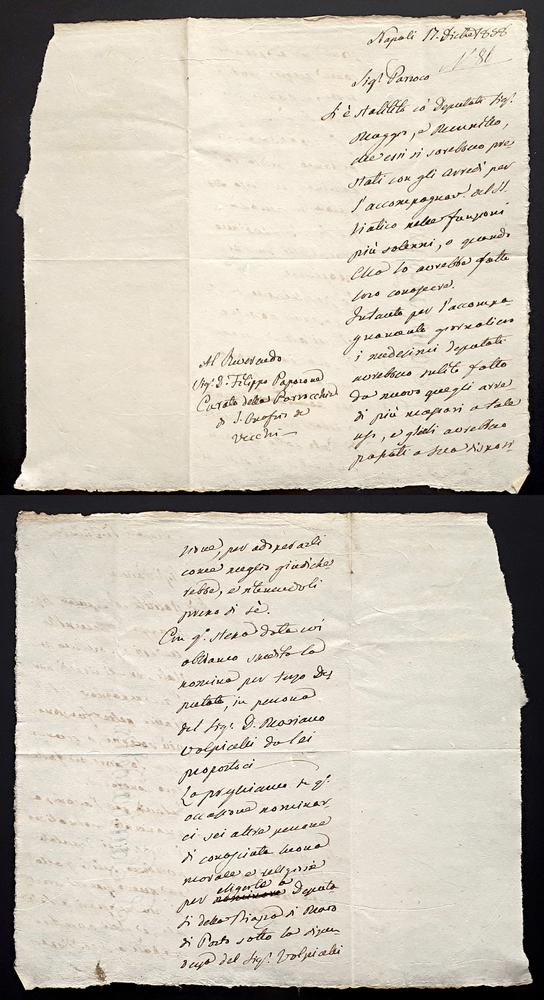 Napoli 17. Dicbre 1838
N.° 81
Sig.r Parroco
Si è stabilito co' Deputati Sig.ri
Maggi, e Minutillo,
che essi si sarebbero pre
stati con gli arredi per
l'accompagnar. del SS.
Viatico nelle funzioni
più solenni, o quando
Ella lo avrebbe fatto
loro conoscere.
Intanto per l'accompa
gnamento giornaliero
i medesimi Deputati
avrebbero subito fatto
da nuovo quegli arre
di più necessari a tale
uso, e glieli avrebbero
passati a sua disposi
Al Reverendo
Sig.r D. Filippo Paparone
Curato della Parrocchia
di S. Onofrio de'
Vecchi
zione, per adoperarli
come meglio giudiche
rebbe, e ritenendoli
presso di sè.
Con q.a stessa data poi
abbiamo spedito la
nomina per terzo De
putato, in persona
del Sig.r D. Mariano
Volpicelli da lei
propostoci
La preghiamo in q.a
occasione nominar
ci sei altre persone
di conosciuta buona
morale e religiosa
per eligerle a Deputa
ti della Piazza di Mezo
di Porto sotto la dipen
denza del Sig.r Volpicelli